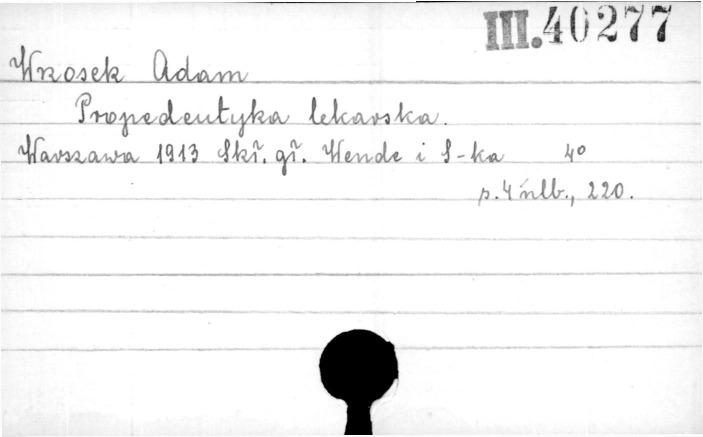 III.40277
Wrzosek Adam
Propedeutyka lekarska.
Warszawa 1913 Skł. gł. Wende i S-ka 4º
p. 4 nlb., 220.